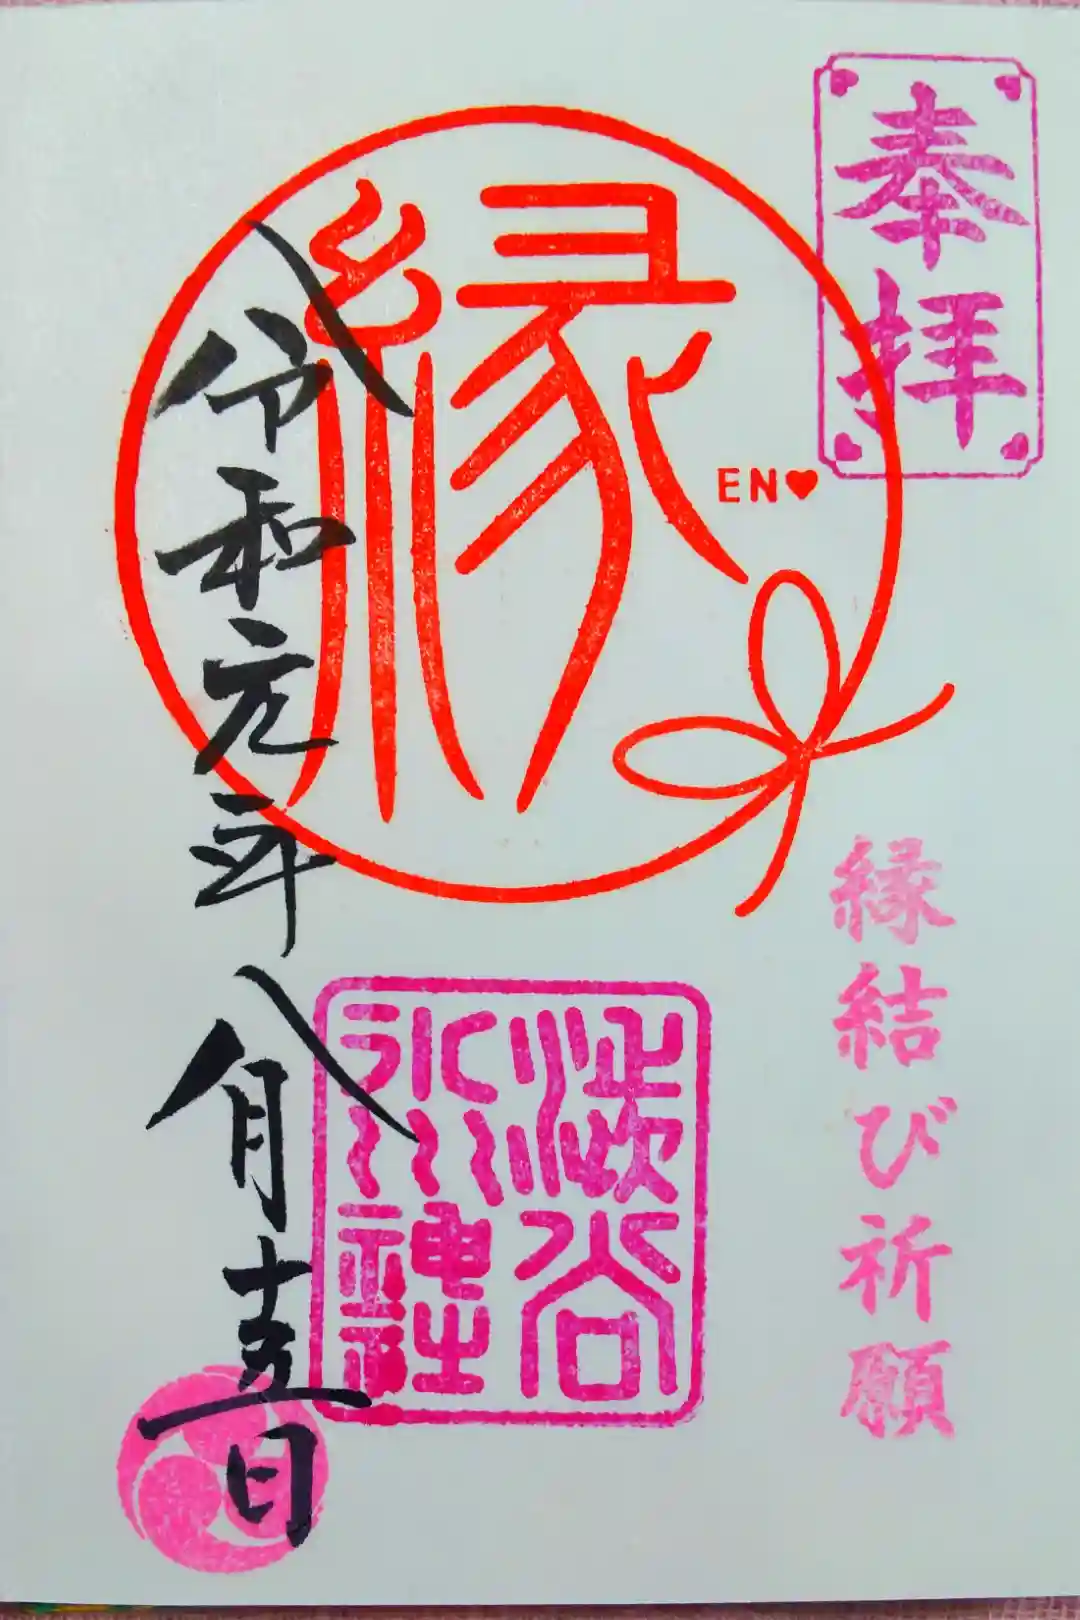 奉拝
縁結び祈願
縁
EN♥
渋谷
氷川
神社
令和元年八月十五日